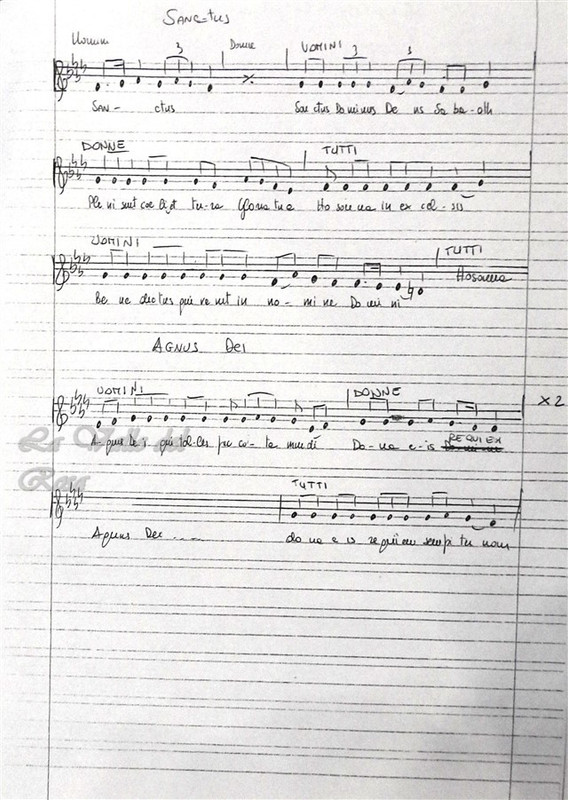 SANCTUS
Uomini 3 Donne UOMINI 3 3
SAN - ctus Sanctus Dominus De us Sa ba - oth
DONNE TUTTI
Ple ni sunt coe li et ter-ra Gloria tua Ho sanna in ex cel - sis
UOMINI TUTTI
Be ne dictus qui ve nit in no - mi ne Do mi ni Hosanna
AGNUS DEI
UOMINI DONNE X 2
A - gnus De i qui tol-lis pec ca - ta mundi Do - na e - is REQUIEM
La Valle del
Rava
TUTTI
Agnus Dei ..... do na e is requiem sempi ter nam